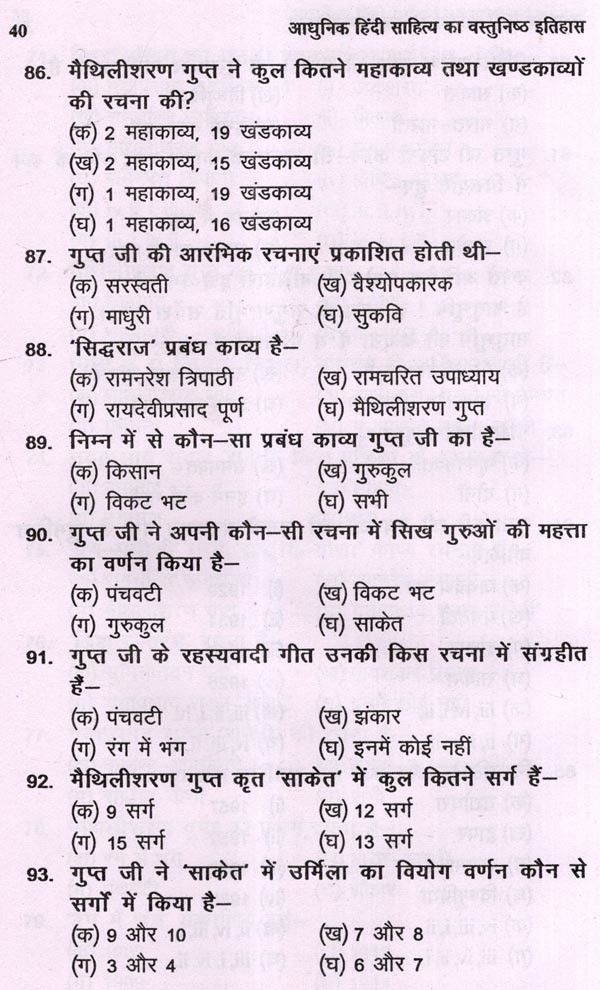 40 आधुनिक हिंदी साहित्य का वस्तुनिष्ठ इतिहास
86. मैथिलीशरण गुप्त ने कुल कितने महाकाव्य तथा खण्डकाव्यों
की रचना की?
(क) 2 महाकाव्य, 19 खंडकाव्य
(ख) 2 महाकाव्य, 15 खंडकाव्य
(ग) 1 महाकाव्य, 19 खंडकाव्य
(घ) 1 महाकाव्य, 16 खंडकाव्य
87. गुप्त जी की आरंभिक रचनाएं प्रकाशित होती थी–
(क) सरस्वती (ख) वेश्योपकारक
(ग) माधुरी (घ) सुकवि
88. 'सिद्धराज' प्रबंध काव्य है–
(क) रामनरेश त्रिपाठी (ख) रामचरित उपाध्याय
(ग) रायदेवीप्रसाद पूर्ण (घ) मैथिलीशरण गुप्त
89. निम्न में से कौन–सा प्रबंध काव्य गुप्त जी का है–
(क) किसान (ख) गुरुकुल
(ग) विकट भट (घ) सभी
90. गुप्त जी ने अपनी कौन–सी रचना में सिख गुरुओं की महत्ता
का वर्णन किया है–
(क) पंचवटी (ख) विकट भट
(ग) गुरुकुल (घ) साकेत
91. गुप्त जी के रहस्यवादी गीत उनकी किस रचना में संग्रहीत
हैं–
(क) पंचवटी (ख) झंकार
(ग) रंग में भंग (घ) इनमें कोई नहीं
92. मैथिलीशरण गुप्त कृत 'साकेत' में कुल कितने सर्ग हैं–
(क) 9 सर्ग (ख) 12 सर्ग
(ग) 15 सर्ग (घ) 13 सर्ग
93. गुप्त जी ने 'साकेत' में उर्मिला का वियोग वर्णन कौन से
सर्गों में किया है–
(क) 9 और 10 (ख) 7 और 8
(ग) 3 और 4 (घ) 6 और 7